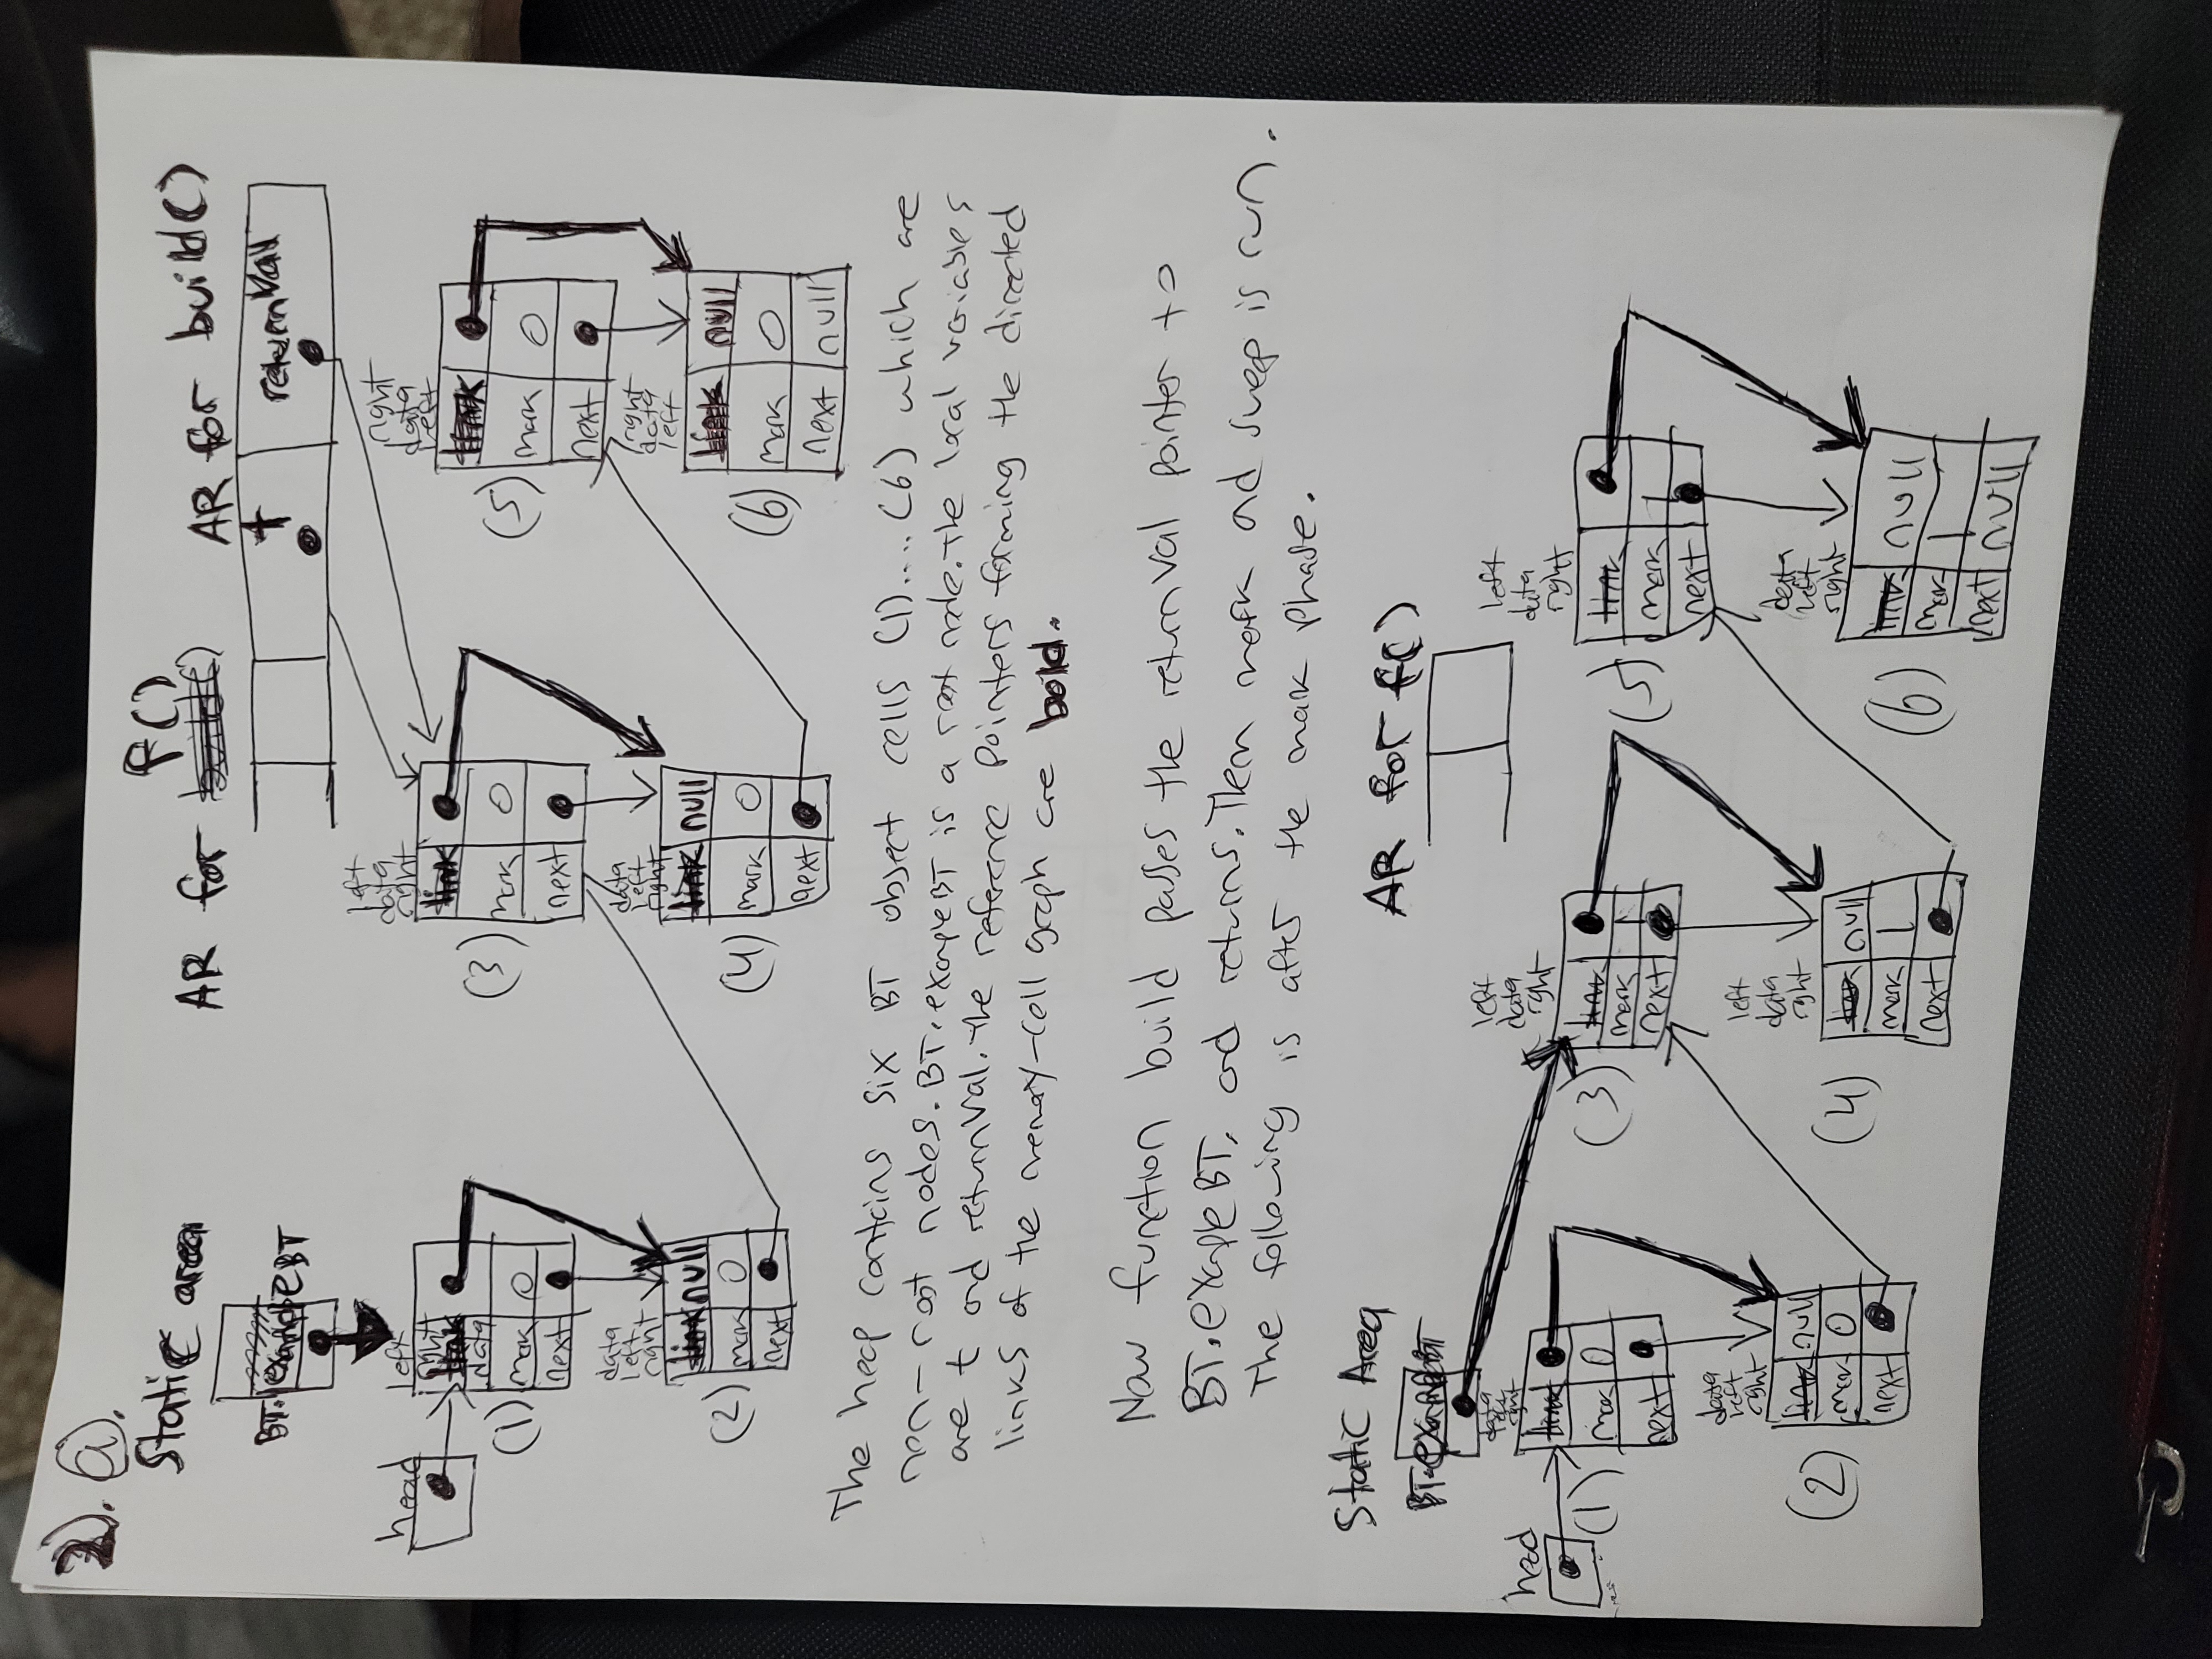 2). a.
Static area
AR for f()
AR for build()
BT.exampleBT
t
returnVal
head
left
right
data
mark 0
next
(1)
data
left
right
null
mark 0
next
(2)
left
data
right
mark 0
next
(3)
data
left
right
null
mark 0
next
(4)
right
data
left
mark 0
next
(5)
right
data
left
null
mark 0
next null
(6)
The heap contains six BT object cells (1)....(6) which are
non-root nodes. BT.exampleBT is a root node. The local variables
are t and returnVal. The reference pointers forming the directed
links of the memory-cell graph are bold.
Now function build passes the returnVal pointer to
BT.exampleBT, and returns. Then mark ad sweep is run.
The following is after the mark phase.
Static Area
AR for f()
BT.exampleBT
head
data
left
right
mark 0
next
(1)
data
left
right
null
mark 0
next
(2)
left
data
right
mark 1
next
(3)
left
data
right
null
mark 1
next
(4)
left
data
right
mark 1
next
(5)
data
left
right
null
mark 1
next null
(6)